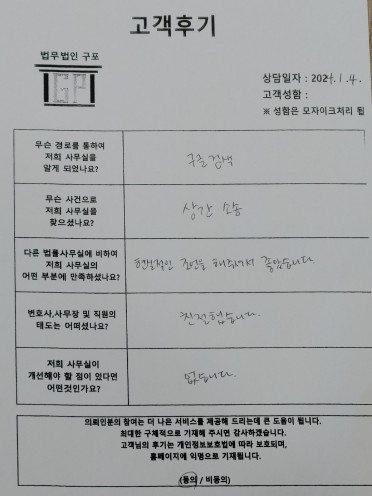 고객후기
법무법인 구포
GP
상담일자 : 2024. 1. 4.
고객성함 :
※ 성함은 모자이크처리 됨
무슨 경로를 통하여
저희 사무실을
알게 되었나요?
구글검색
무슨 사건으로
저희 사무실을
찾으셨나요?
상간 소송
다른 법률사무실에 비하여
저희 사무실의
어떤 부분에 만족하셨나요?
현실적인 조언을 해주셔서 좋았습니다.
변호사,사무장 및 직원의
태도는 어떠셨나요?
친절했습니다.
저희 사무실이
개선해야 할 점이 있다면
어떤것인가요?
없습니다.
의뢰인분의 참여는 더 나은 서비스를 제공해 드리는데 큰 도움이 됩니다.
최대한 구체적으로 기재해 주시면 감사하겠습니다.
고객님의 후기는 개인정보보호법에 따라 보호되며,
홈페이지에 익명으로 기재됩니다.
(동의 / 비동의)